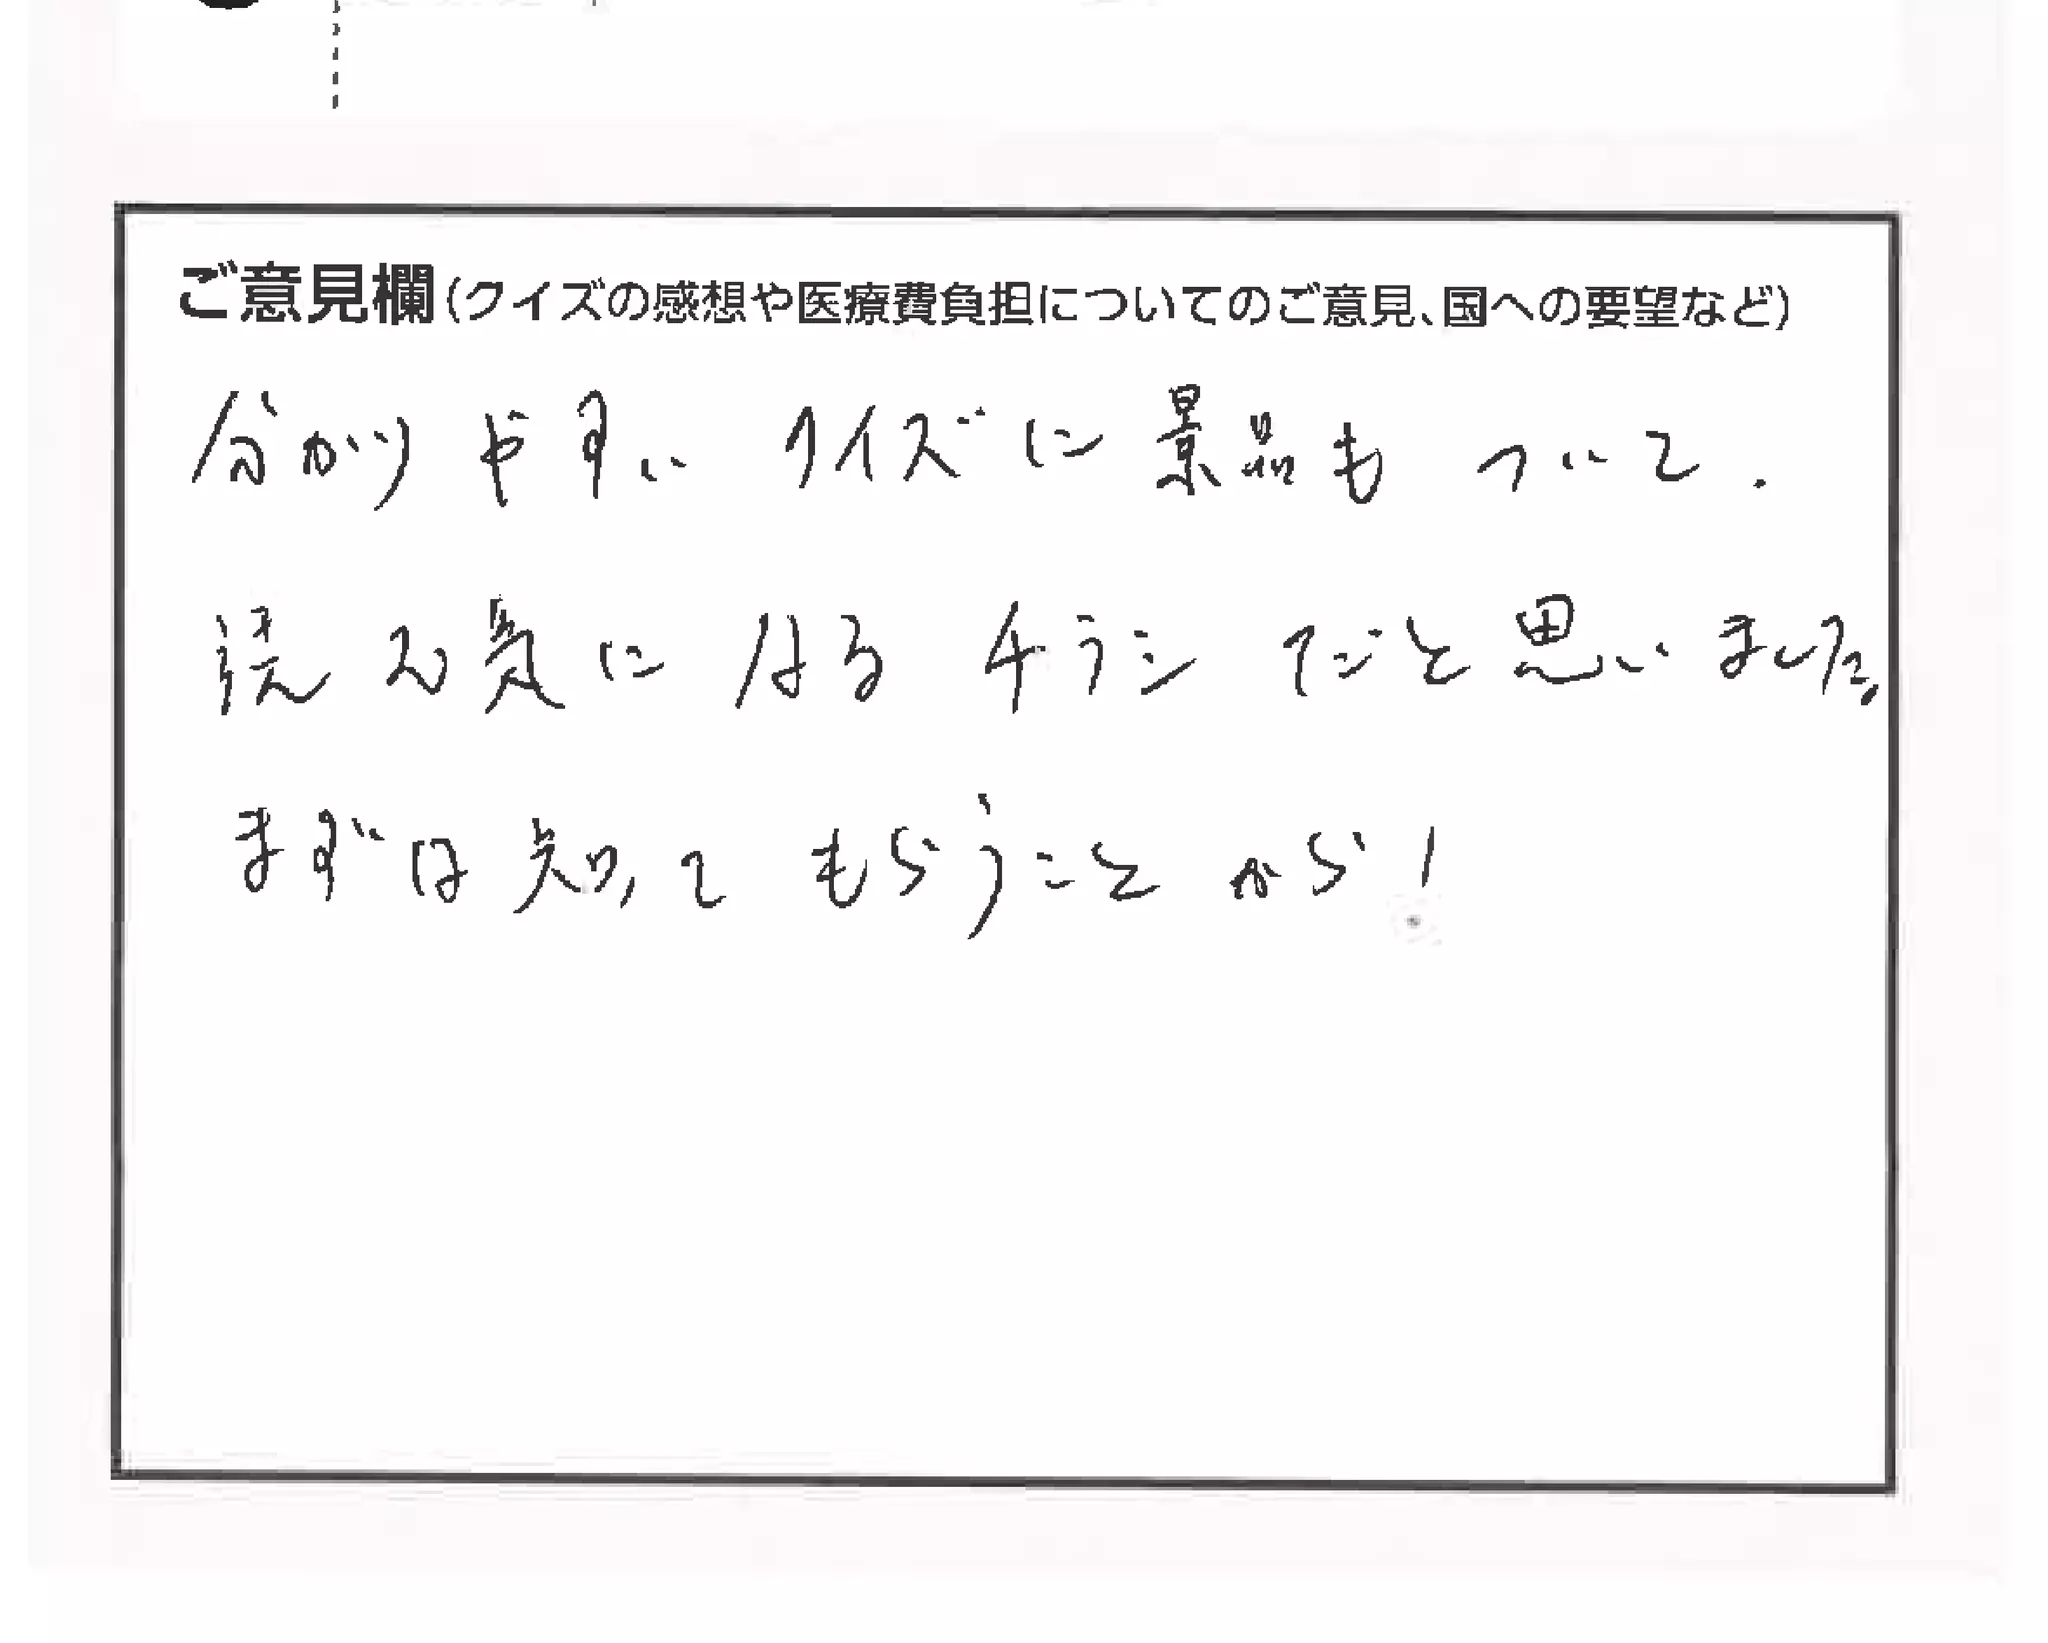 ご意見欄(クイズの感想や医療費負担についてのご意見、国への要望など)
分かりやすい クイズに景品も ついて、
読む気に なる チラシ だと思いました。
まずは知ってもらうことから!